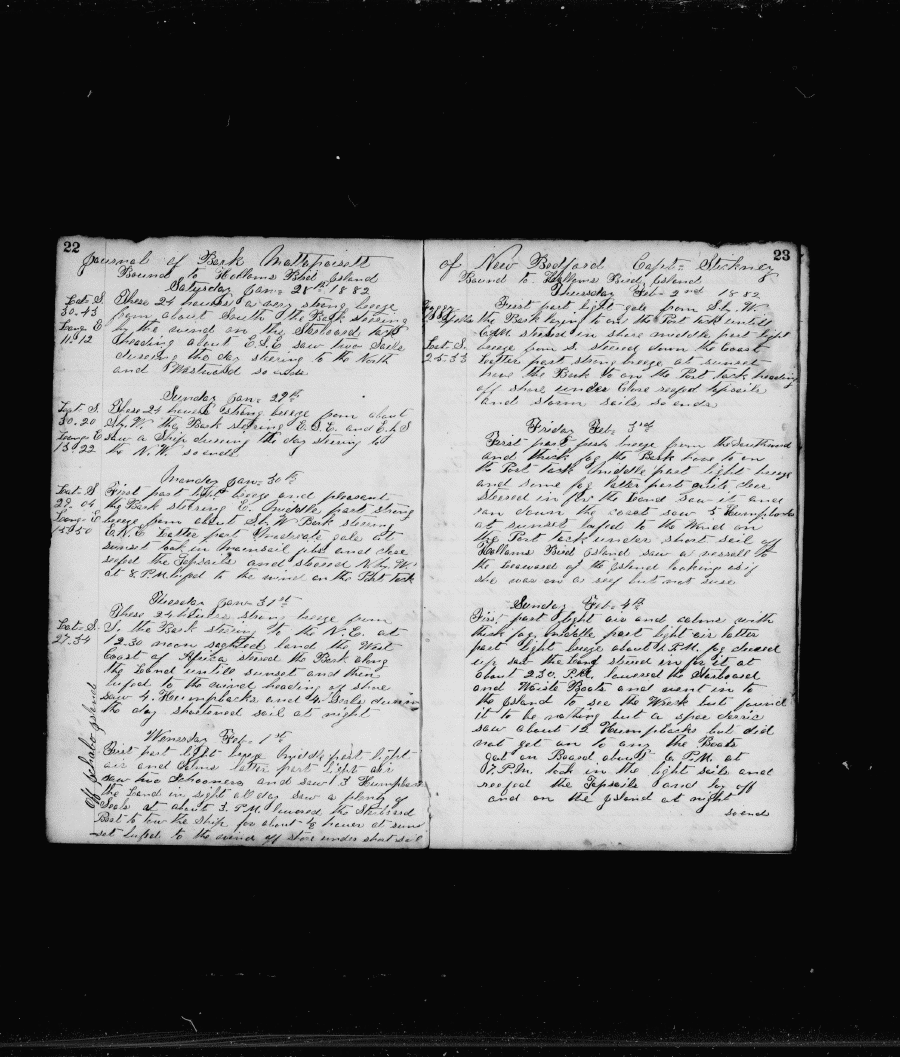 22
Journal of Bark Mattapoisett
Bound to Hollams Bird Island
Saturday Jan= 28th 1882
Lat= S. These 24 hours a very strong breeze
30.43 from about South the Bark steering
Long= E by the wind on the Starboard tack
11.12 heading about E.S.E saw two Sails
during the day steering to the North
and Westward so ends
Sunday Jan= 29th
Lat= S. These 24 hours strong breeze from about
30.20 S.by.W. the Bark steering E.S.E. and E.b.S
Long= E saw a Ship during the day steering to
13.22 the N.W. so ends
Monday Jan= 30th
Lat= S First part light breeze and pleasent
29.04 the Bark steering E. middle part strong
Long= E breeze from about S.by.W Bark steering
15.50 E.N.E Latter part Moderate gale at
sunset took in mainsail jibs and close
reefed the Topsails and steered N.by.W.
at 8. P.M. lufed to the wind on the Port tack
Tuesday Jan= 31st
These 24 hours strong breeze from
Lat= S. S. the Bark steering to the N.E. at
27.34 12.30 noon sighted land the West
Coast of Africa steered the Bark along
the Land untill sunset and then
lufed to the wind heading of shore
saw 4. Humpbacks and Seals during
the day shortened sail at night
Wensday Feb. 1st
Off Ichabo Island
First part light breeze middle part light
air and calms latter part light air
saw two Schooners and saw 3 Humpbacks
the Land in sight all day saw a plenty of
Seals at about 3. P.M. lowered the Starboard
Boat to tow the Ship for about ½ hour at sun
set lufed to the wind off shore under short sail
23
of New Bedford Capt= Stickney
Bound to Hollams Bird Island
Thursday Feb= 2nd 1882
First part light gale from S.by.W.
the Bark laying to on the Port tack untill
A.M. steered in shore middle part light
Lat= S. breeze from S. steering down the Coast
25.33 Latter part strong breeze at sunset
hove the Bark to on the Port tack heading
off shore under Close reefed topsails
and storm sails so ends
Friday Feb. 3rd
First part fresh breeze from the Southward
and thick fog the Bark hove to on
the Port tack middle part light breeze
and some fog latter part quite clear
steered in for the Land saw it and
ran down the coast saw 5 Humpbacks
at sunset lufed to the Wind on
the Port tack under short sail off
Hollams Bird Island saw a vessell to
the leeward of the Island looking as if
she was on a reef but not sure
Sunday Feb= 4th
First part light air and calms with
thick fog middle part light air latter
part light breeze about 2. P.M. fog cleared
up saw the Land steered in for it at
about 2.30. P.M. lowered the Starboard
and Waist Boats and went in to
the Island to see the Wreck but found
it to be nothing but a spee derric
saw about 12 Humpbacks but did
not get on to any the Boats
got on Board about 6 P.M. at
7. P.M. took in the light sails and
reefed the Topsails and lay off
and on the Island at night
so ends